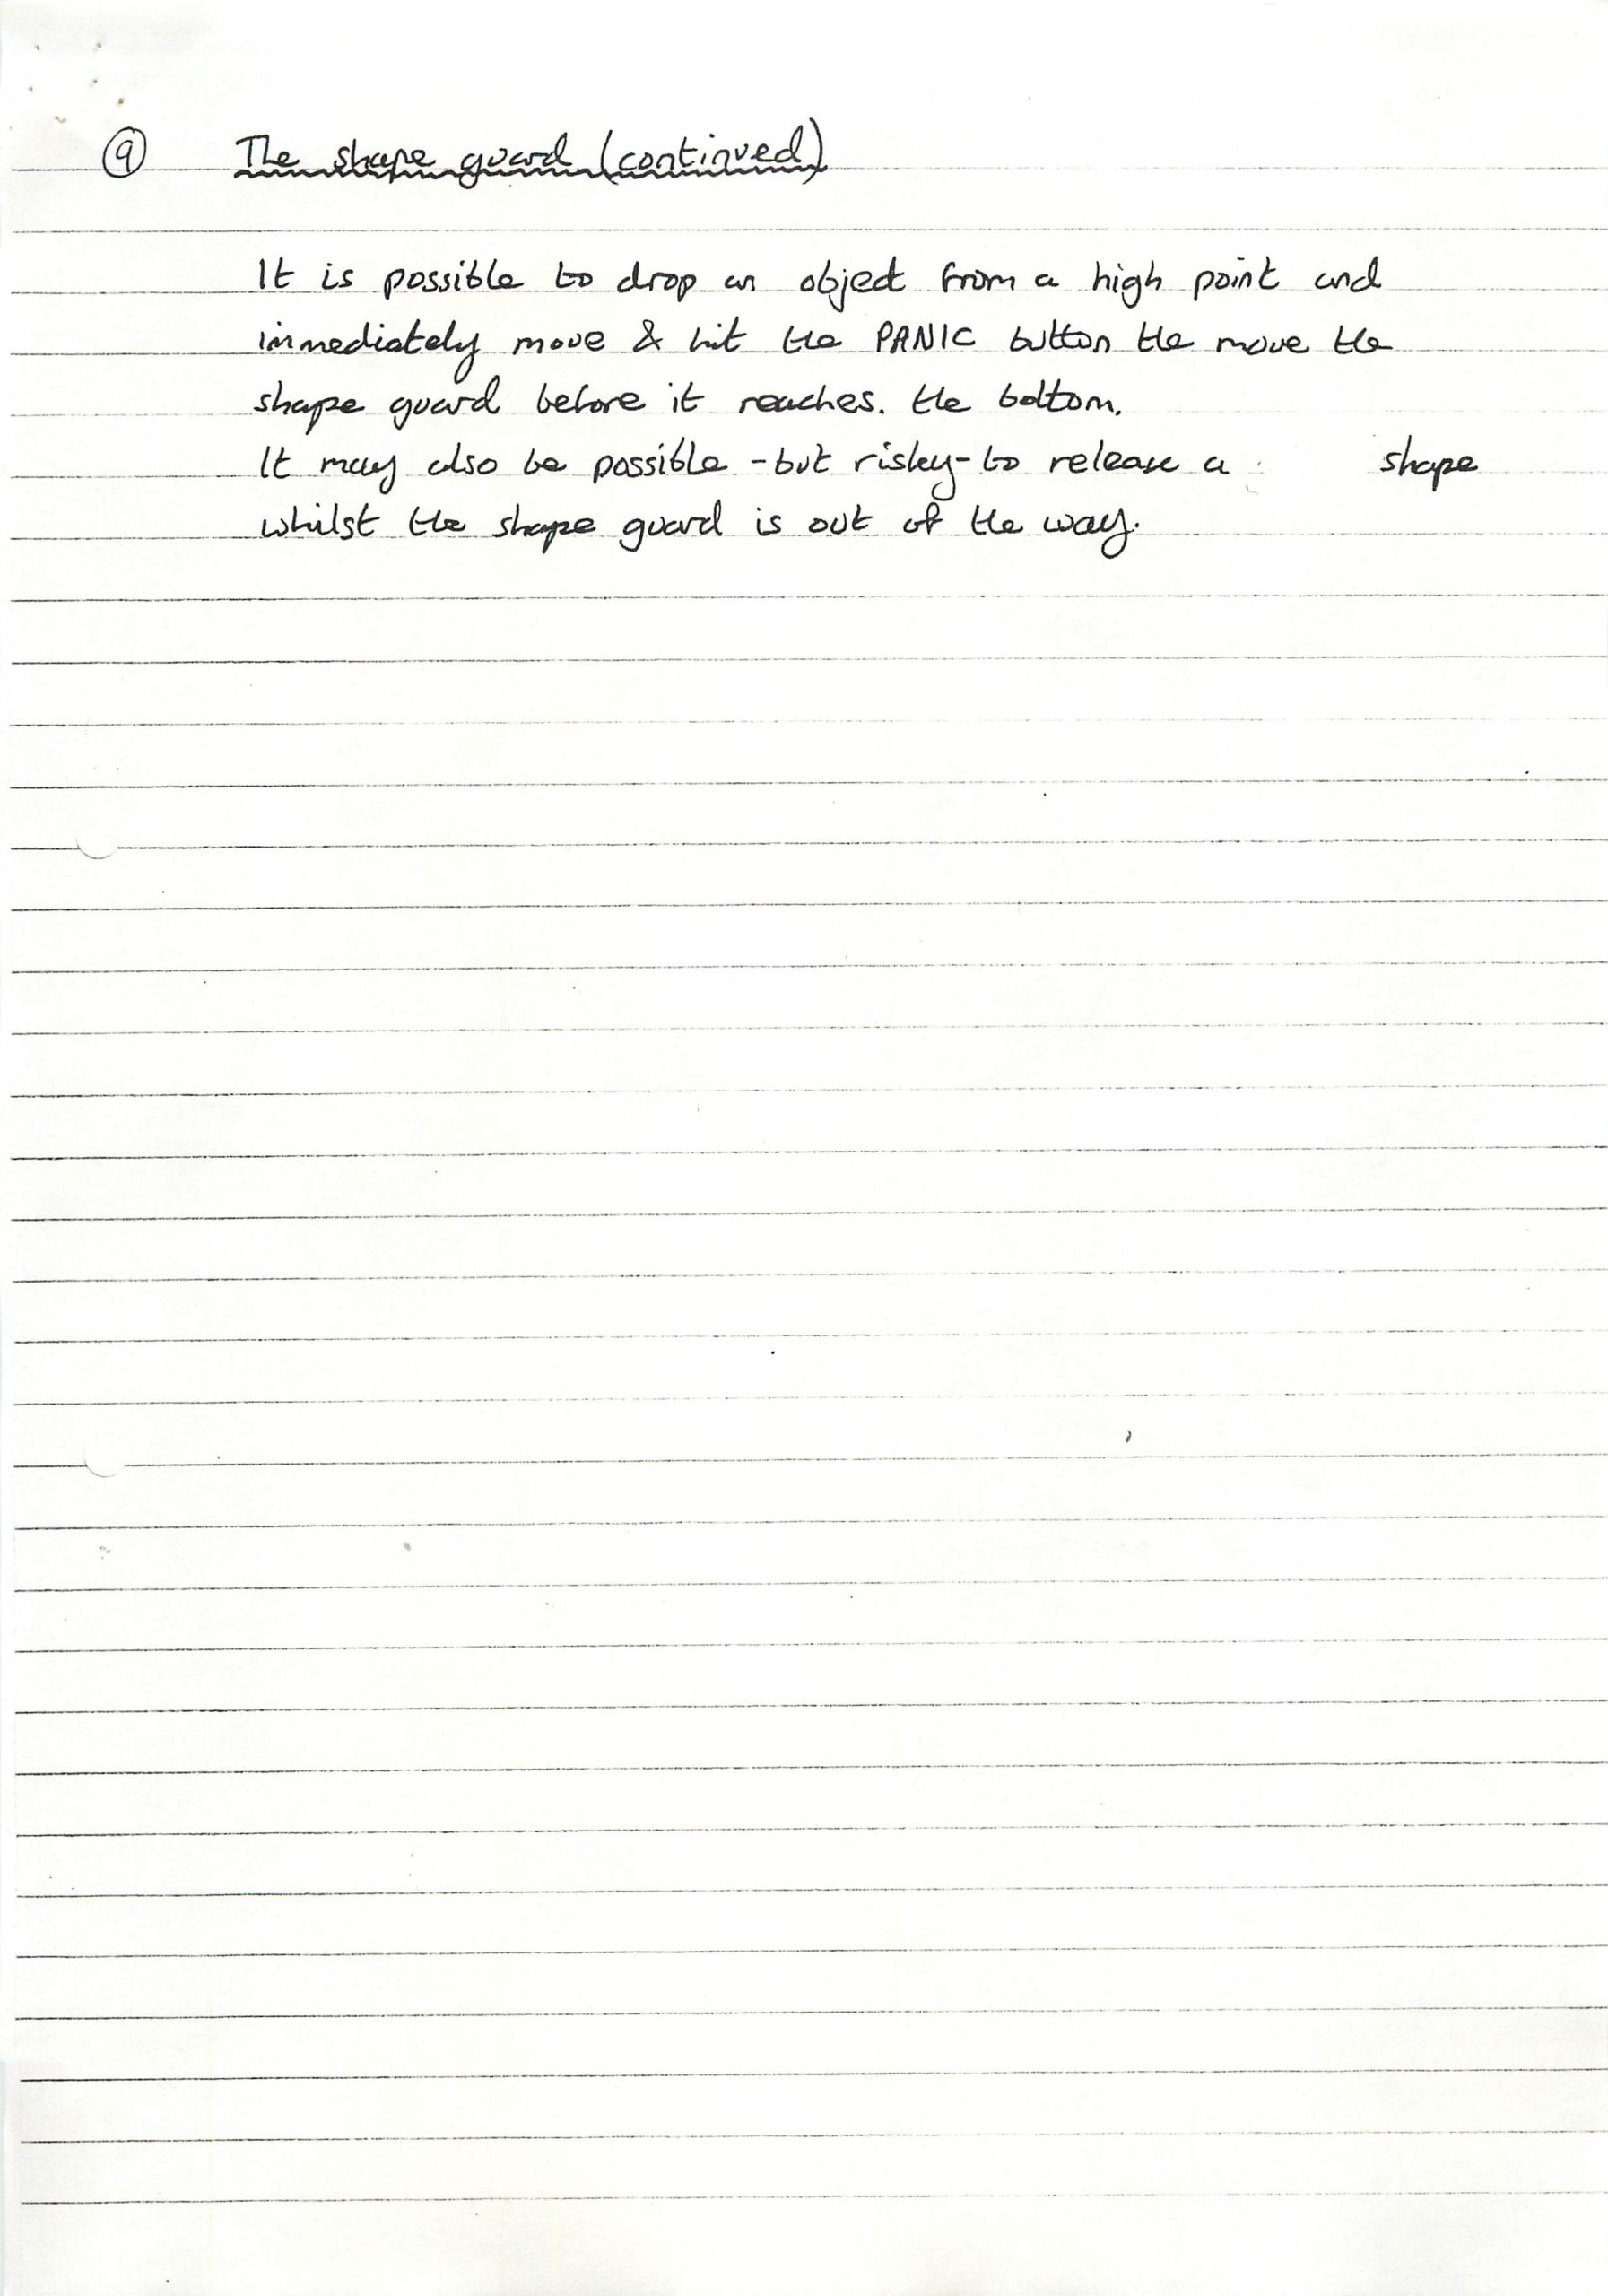 9 The shape guard (continued)
It is possible to drop an object from a high point and
immediately move & hit the PANIC button the move the
shape guard before it reaches. the bottom.
It may also be possible - but risky - to release a shape
whilst the shape guard is out of the way.